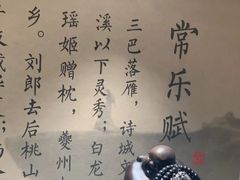 常乐赋
三巴落雁，诗城文
溪以下灵秀；白龙
瑶姬赠枕，夔州
乡。刘郎去后桃山